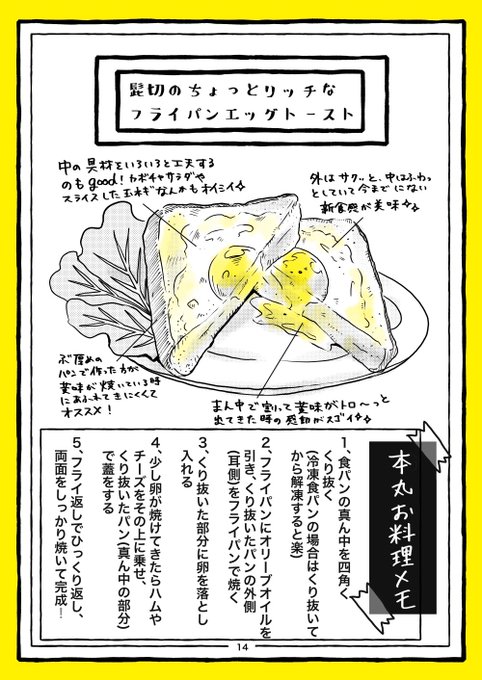 髭切のちょっとリッチな
フライパンエッグトースト
中の具材をいろいろと工夫する
のもgood!カボチャサラダや
スライスした玉ねぎなんかもオイシイ
外はサクッと、中はふわっ
としていて今までにない
新食感が美味
ぶ厚めの
パンで作った方が
黄味が焼いている時
にあふれてきにくくて
オススメ!
まん中で割って黄味がトロ〜っと
出てきた時の感動がスゴイ
本丸お料理メモ
1、食パンの真ん中を四角く
くり抜く
(冷凍食パンの場合はくり抜いて
から解凍すると楽)
2、フライパンにオリーブオイルを
引き、くり抜いたパンの外側
(耳側)をフライパンで焼く
3、くり抜いた部分に卵を落とし
入れる
4、少し卵が焼けてきたらハムや
チーズをその上に乗せ、
くり抜いたパン(真ん中の部分)
で蓋をする
5、フライ返しでひっくり返し、
両面をしっかり焼いて完成!
14